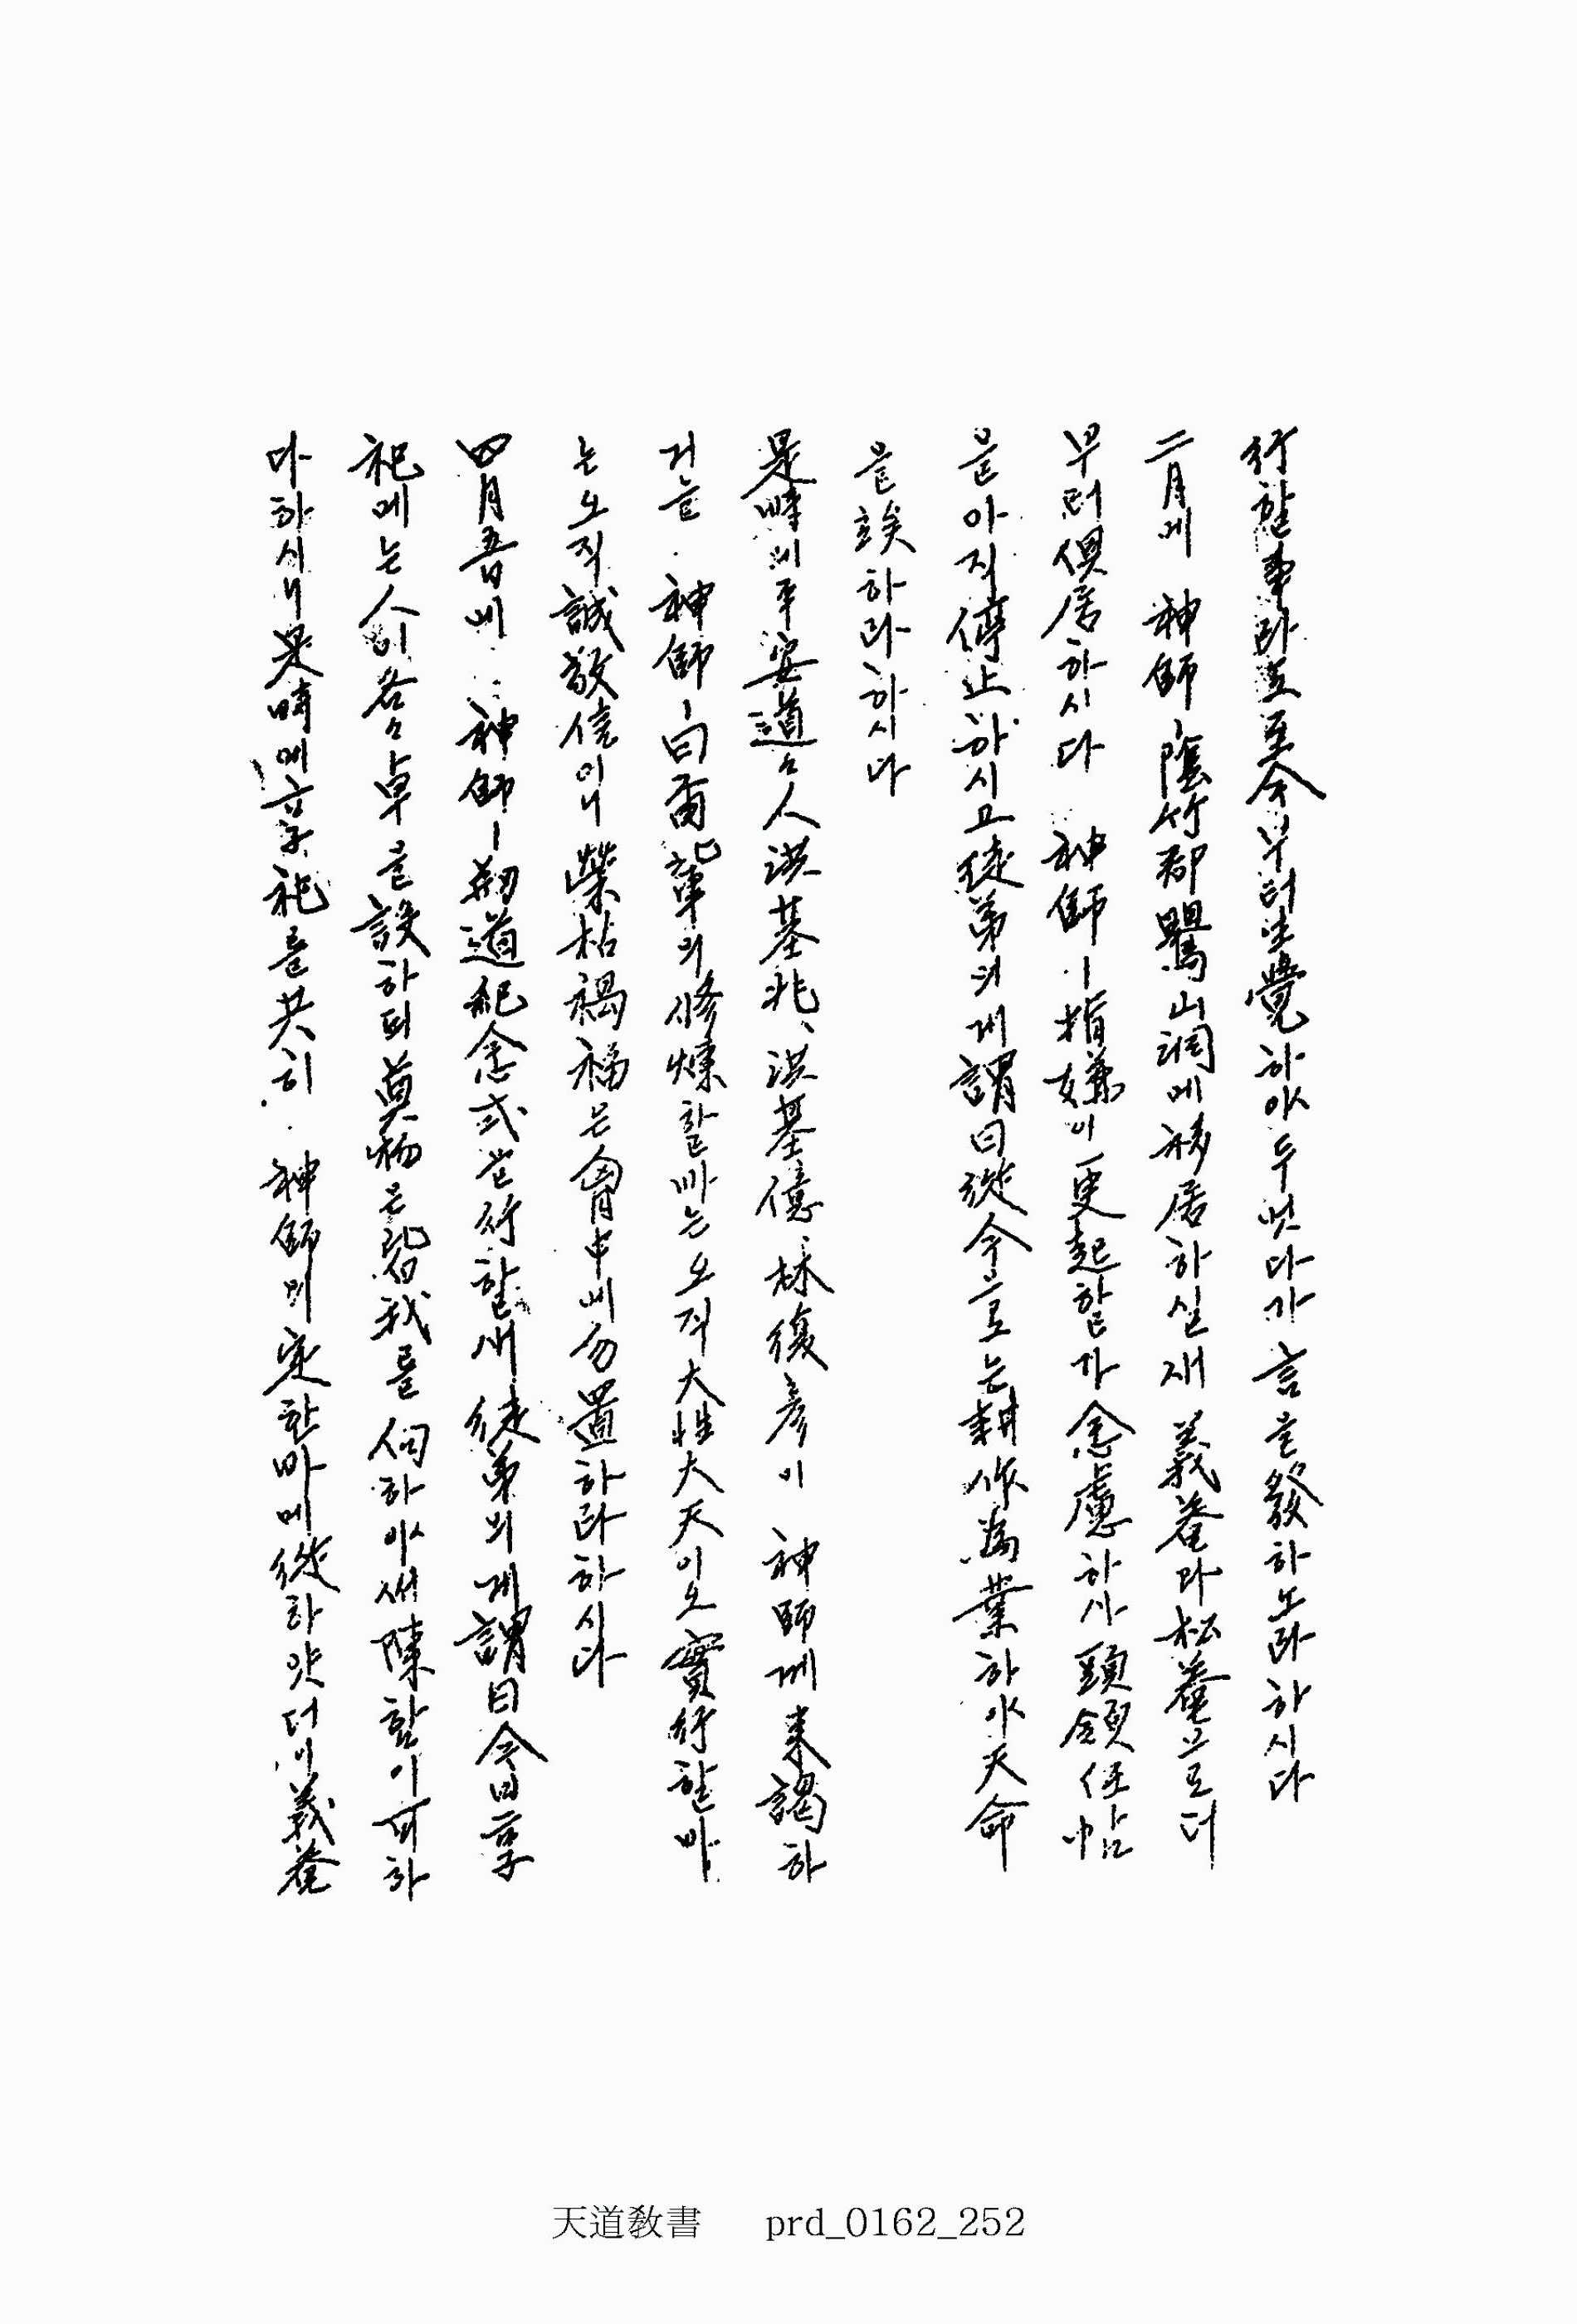 行할事라오至今부터生覺하야두엇다가言을發하노라하시다
二月에 神師ㅣ陰竹郡鸎山洞에移居하실새 義菴과松菴으로더
부러俱居하시다 神師ㅣ指嫌이更起할가念慮하사頭領任帖
을아직停止하시고徒弟의게謂曰從今으로는耕作爲業하야天命
을竢하라하시다
是時에平安道人洪基兆、洪基億、林復彦이 神師께來謁하
거늘 神師ㅣ曰爾輩의修煉할바는오직大性大天이오實行할바
는오직誠敬信이니榮枯禍福은胷中에勿置하라하시다
四月五日에 神師ㅣ刱道紀念式을行할새徒弟의게謂曰今日享
祀에는人이各各卓을設하되奠物은皆我를向하야써陳함이可하
다하시니是時에享祀를共히 神師의定한바에從하얏더니義菴
天道敎書 prd_0162_252